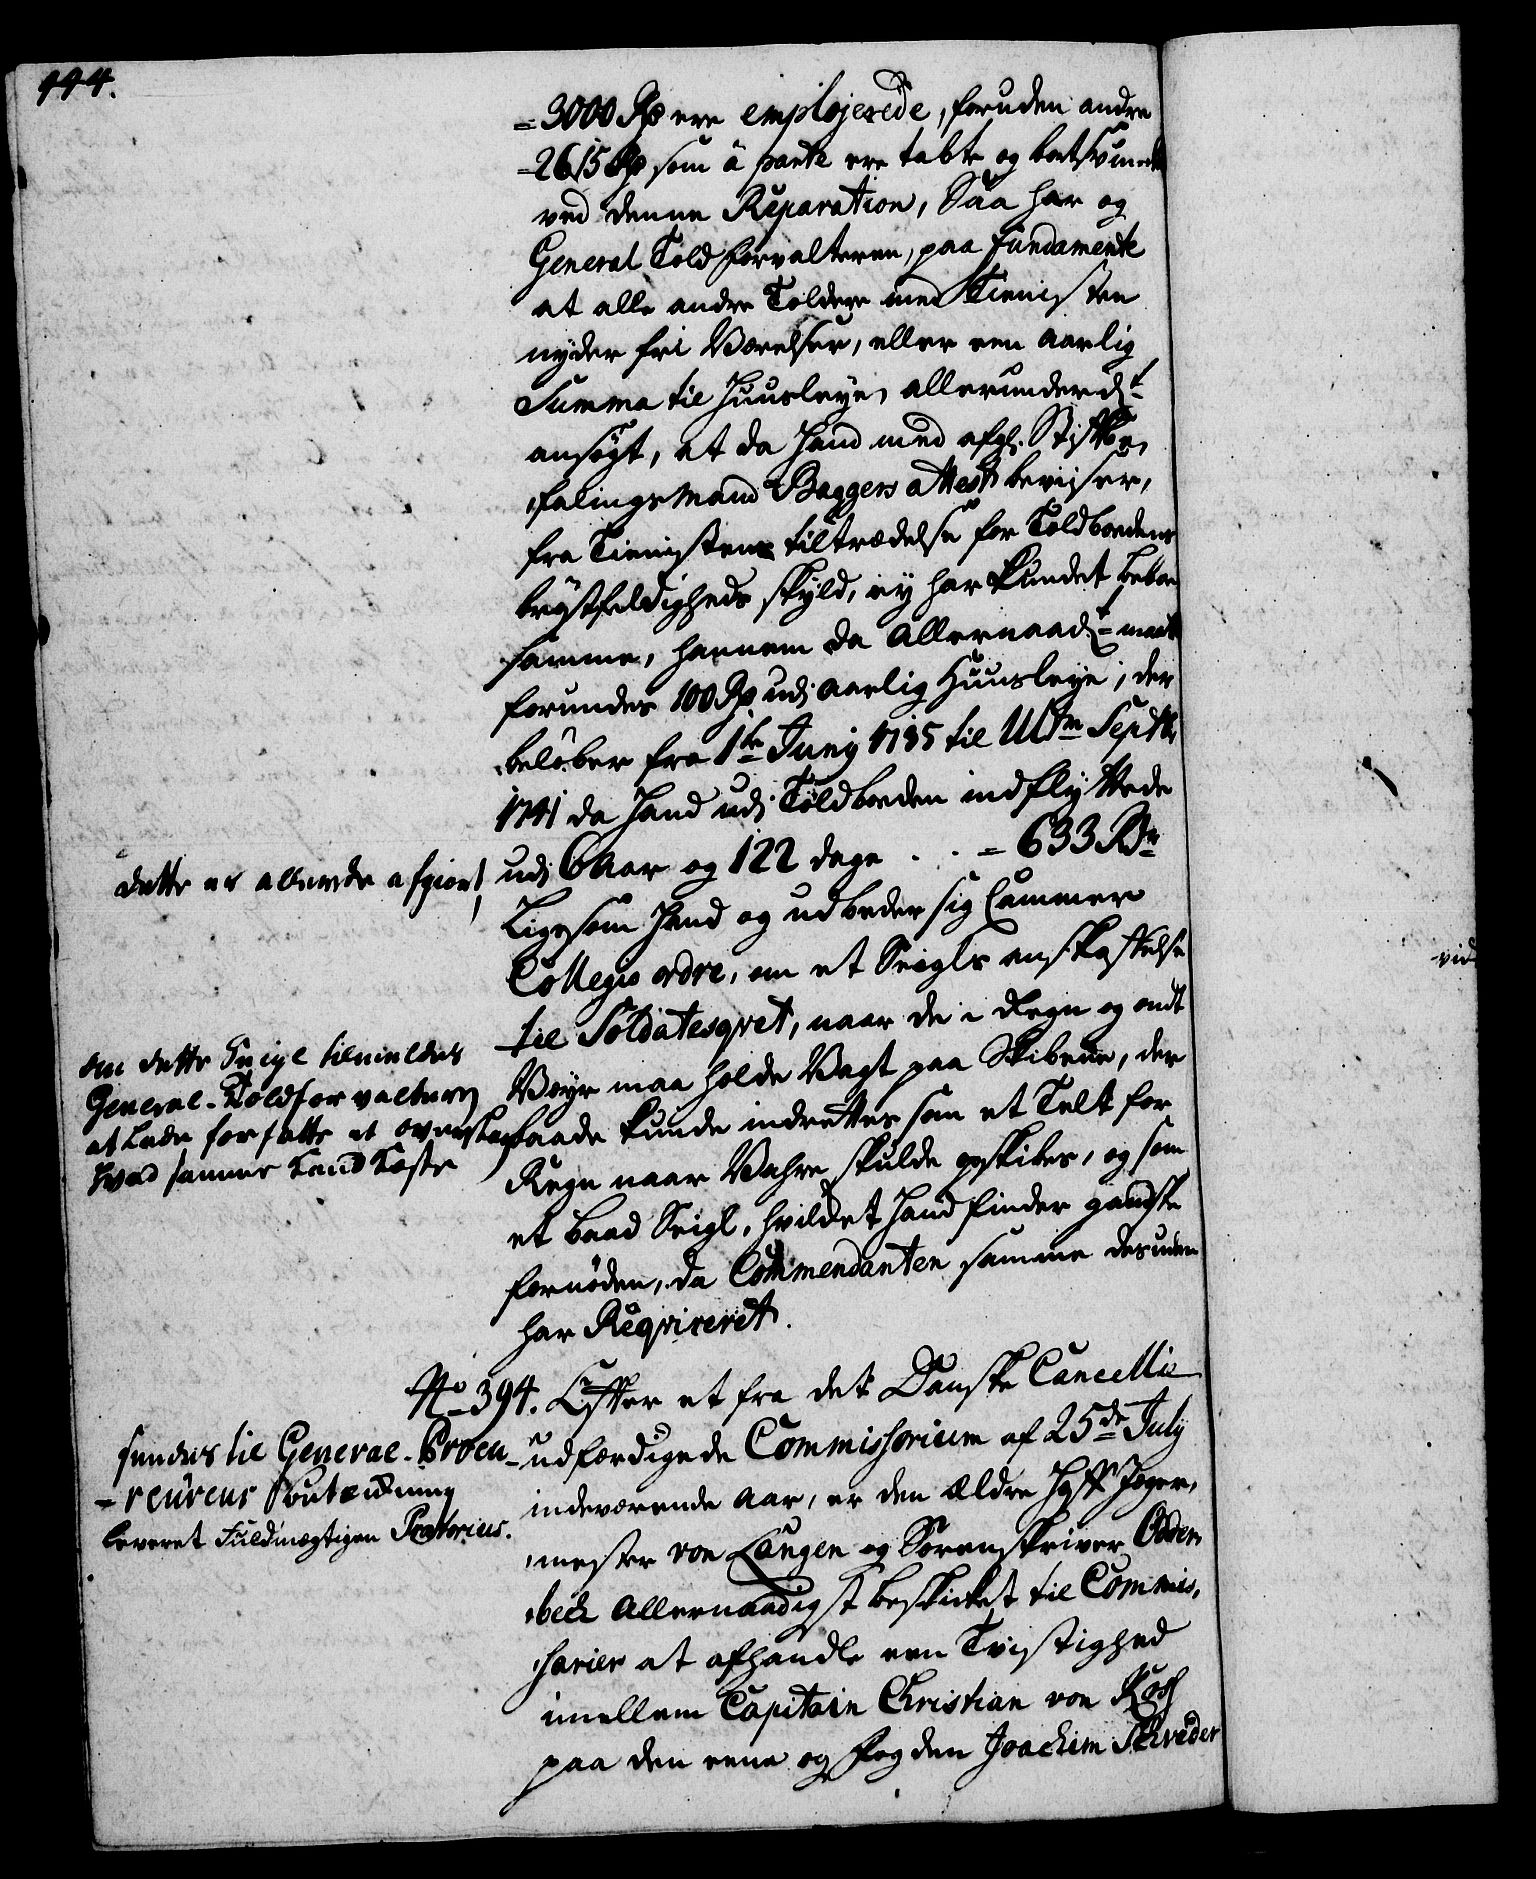 444.
=3000 Rd ere emplojerede, foruden andre
=2615 Rd som à parte ere tabte og bortsvundne
ved denne Reparation, Saa har og
General Toldforvalteren, paa fundamente
at alle andre Toldere med Tienisten
nyder fri Værelser, eller een aarlig
Summa til Huusleye, allerunderdt
ansøgt, at da Hand med afgl. Stiftbe,
,falingsMand Baggers attest beviiser,
fra Tienistens tiltrædelse for Toldbodens
brøstfeldigheds skyld, ey har kundet beboe
samme, hannem da Allernaadt maatte
forundes 100 Rd udj aarlig Huusleye, der
beløber fra 1te Junij 1735 til Ultm Septbr
1741 da Hand udj Toldboden indflyttede
udj 6 Aar og 122 dage . . = 633 Rdr
dette er allerede afgiort,
Ligesom Hand og udbeder sig Cammer
Collegii ordre, om et Seigls anskaffelse
til Soldatesqvet, naar de i Regn og ondt
Veyr maa holde Vagt paa Skibene, der
baade kunde indrettes som et Telt for
Regn naar Vahre skulde opskibes, og som
et Baad Seigl, hvilket Hand finder gandske
fornøden, da Commendanten samme desuden
har Reqvireret.
om dette Seigl tilmeldes
General-Toldforvalteren
at lade forfatte et overslag
hvad samme kand koste
No 394. Efter et fra det Danske Cancellie
udfærdigede Commissorium af 25de July
indeværende Aar, er den Ældre Hoff Jæger,
,mester von Langen og Sorenskriver Odden,
,beck Allernaadigst beskicket til Commis,
,sarier at afhandle een Tvistighed
imellem Capitain Christian von Koss
paa den eene og Fogden Joachim Schrøder
sendes til General-Procu-
-reurens Betænkning
leveret Fuldmægtigen Prætorius.
vid